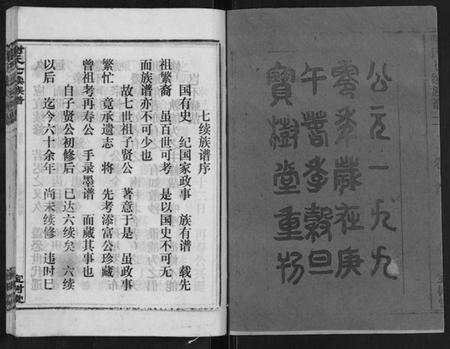 公元一九九
零年歲在庚
午暮春穀旦
寶樹堂重
七续族谱序
国有史 纪国家政事 族有谱 载先
祖繁裔 虽百世可考 是以国史不可无
而族谱亦不可少也
故七世祖子贤公 著意于是 虽政事
繁忙 竟承遗志 将 先考添富公珍藏
曾祖考再寿公 手录墨谱 而藏其事也
自子贤公初修后 已达六续矣 六续
以后 迄今六十余年 尚未续修 违时已
七续族谱